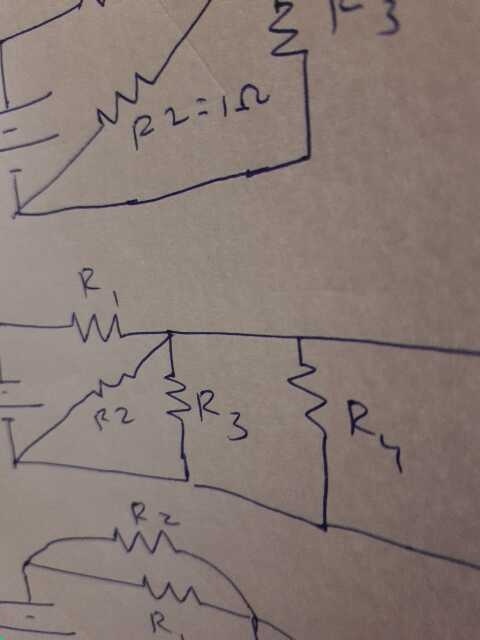 R3
R2=1Ω
R1
R2
R3
R4
R2
R1